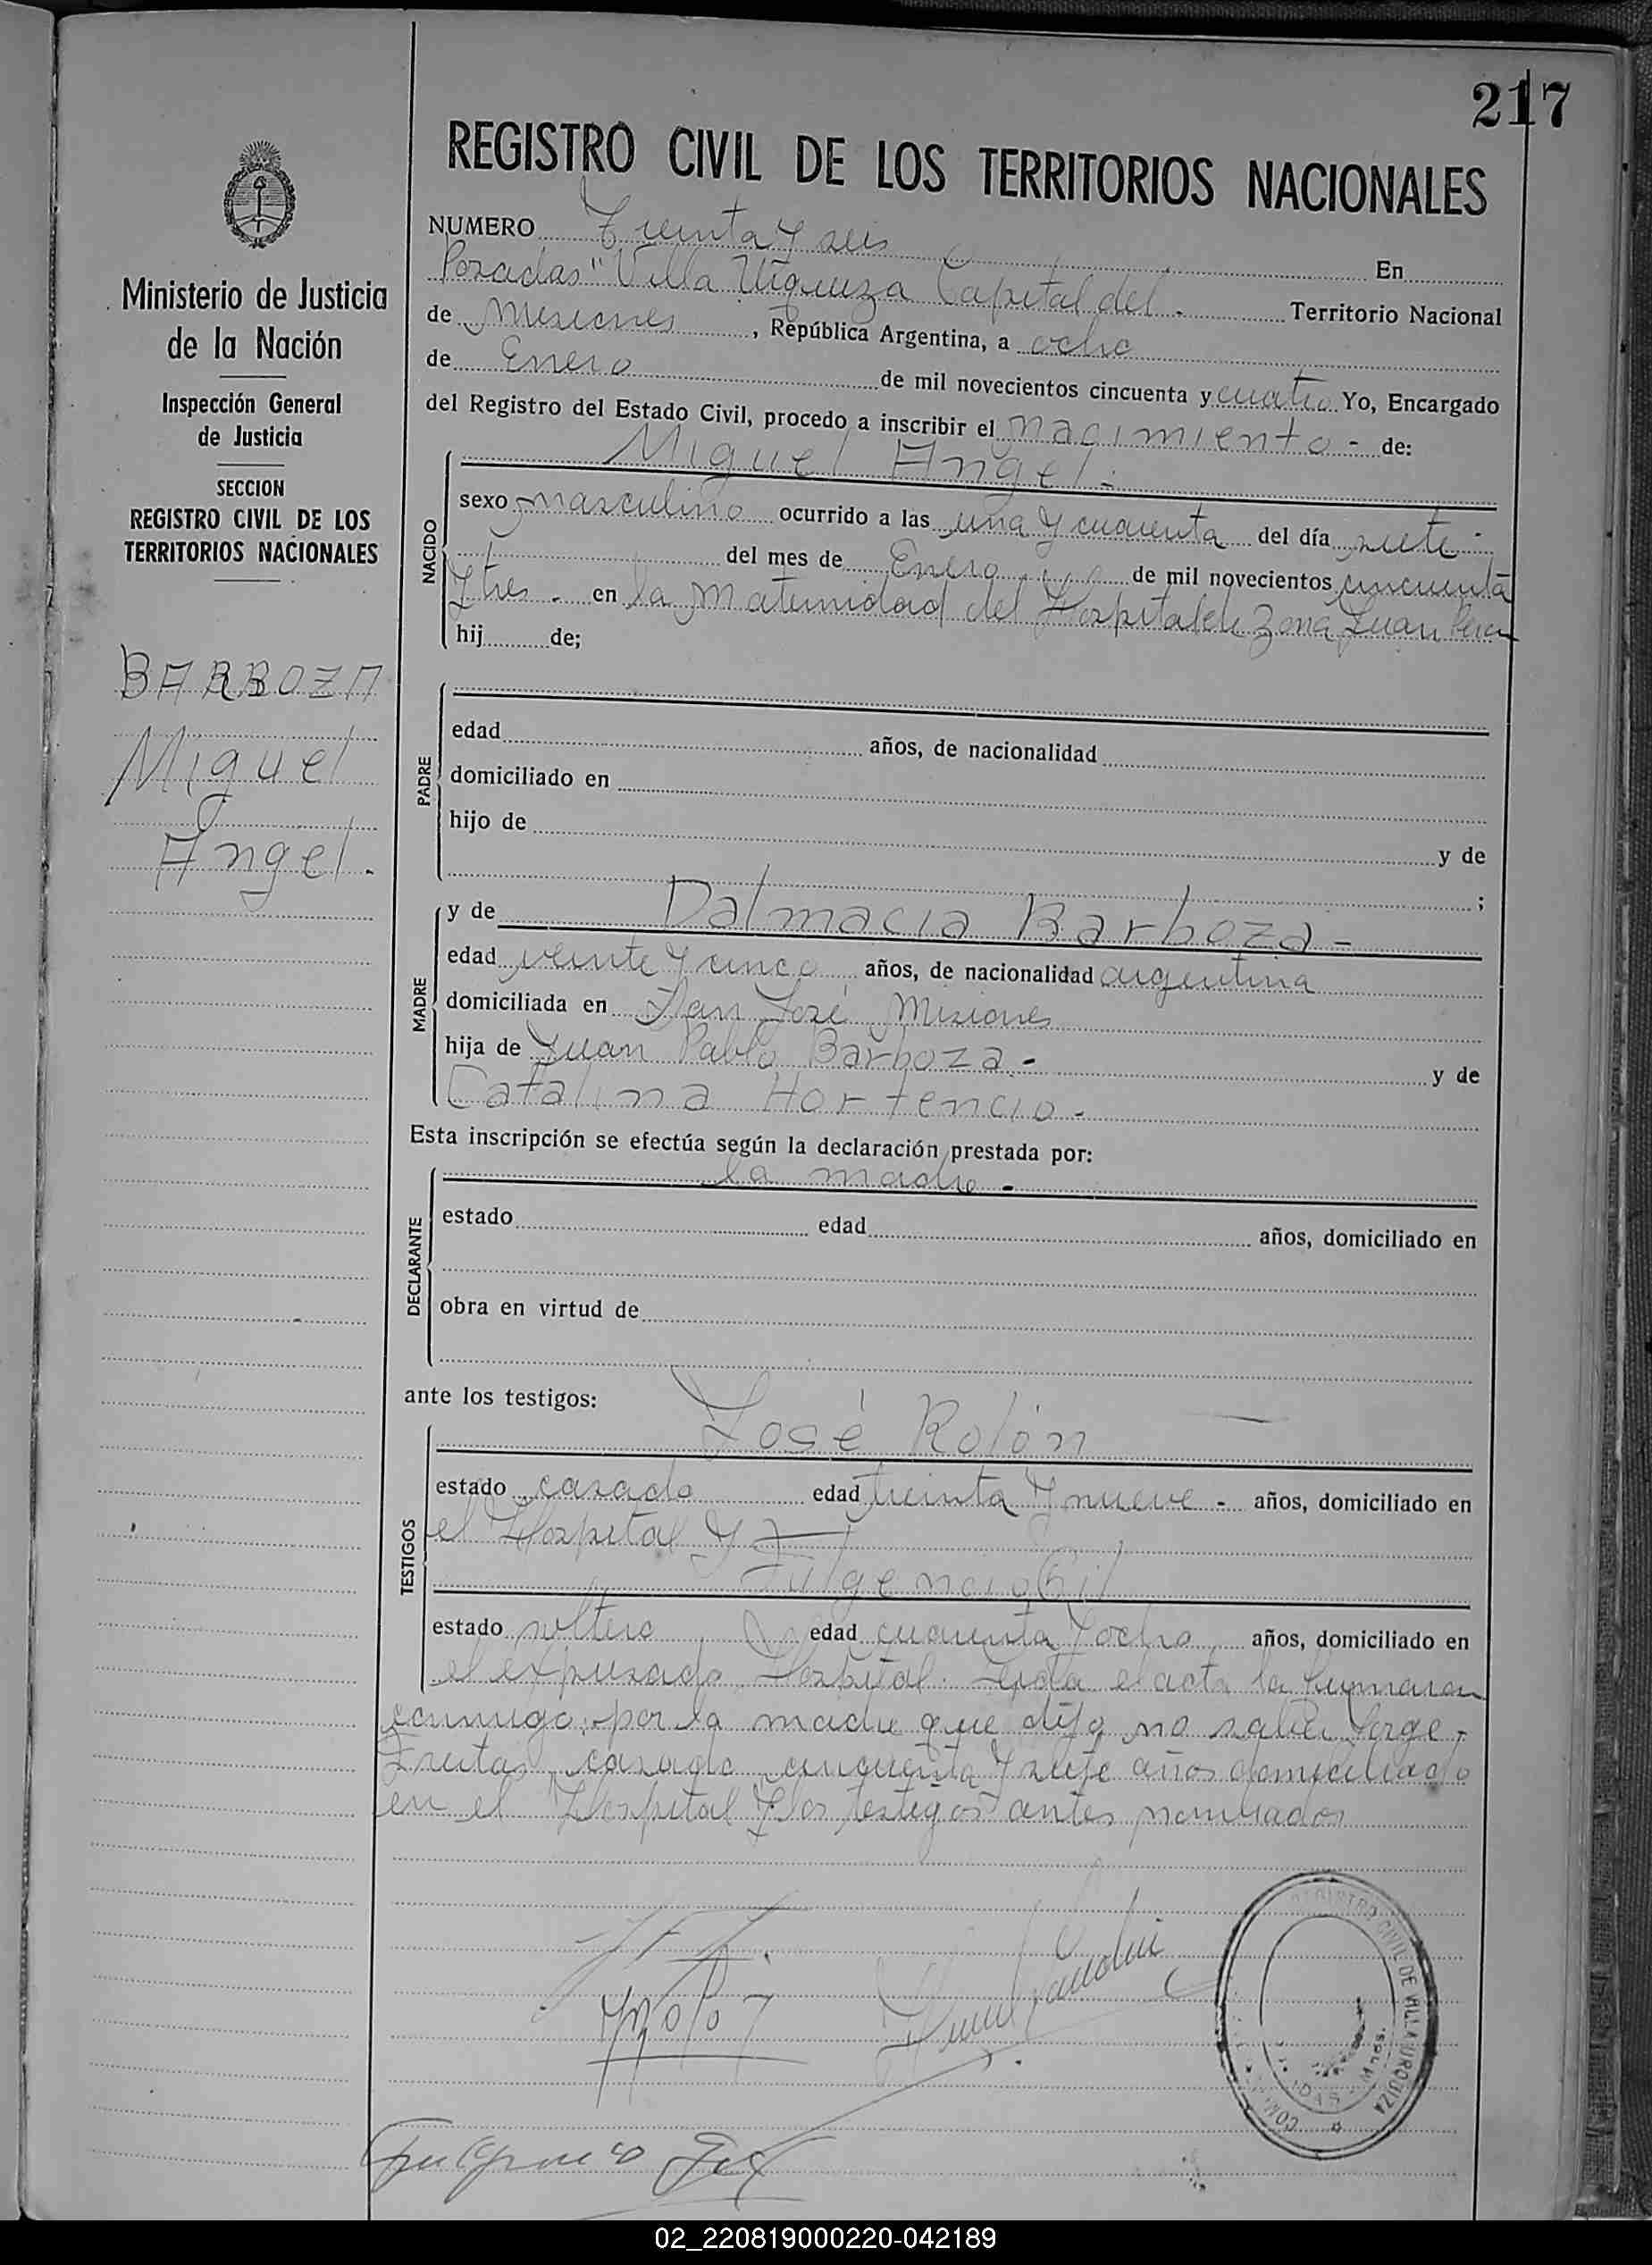 217
REGISTRO CIVIL DE LOS TERRITORIOS NACIONALES
Ministerio de Justicia
de la Nación
Inspección General
de Justicia
SECCION
REGISTRO CIVIL DE LOS
TERRITORIOS NACIONALES
BARBOZA
Miguel
Angel.
NUMERO Treinta y seis En
Posadas "Villa Urquiza Capital del. Territorio Nacional
de Misiones, República Argentina, a ocho
de Enero de mil novecientos cincuenta y cuatro Yo, Encargado
del Registro del Estado Civil, procedo a inscribir el nacimiento - de:
NACIDO
Miguel Angel.
sexo masculino ocurrido a las una y cuarenta del día siete
del mes de Enero de mil novecientos cincuenta
y tres. en la Maternidad del Hospital de Zona Juan
hij de;
PADRE
edad años, de nacionalidad
domiciliado en
hijo de y de
;
MADRE
y de Dalmacia Barboza-
edad veinte y cinco años, de nacionalidad argentina
domiciliada en San José Misiones
hija de Juan Pablo Barboza- y de
Catalina Hortencio-
Esta inscripción se efectúa según la declaración prestada por:
DECLARANTE
la madre-
estado edad años, domiciliado en
obra en virtud de
ante los testigos:
TESTIGOS
José Rolón
estado casado edad treinta y nueve - años, domiciliado en
el Hospital y
Fulgencio Gil
estado soltero edad cuarenta y ocho años, domiciliado en
el expresado Hospital. Leida el acta la firmaron
conmigo: por la madre que dijo no saber Jorge
casado cincuenta y siete años domiciliado
en el Hospital y los testigos antes nombrados
REGISTRO CIVIL DE VILLA URQUIZA
Mnes.
02_220819000220-042189